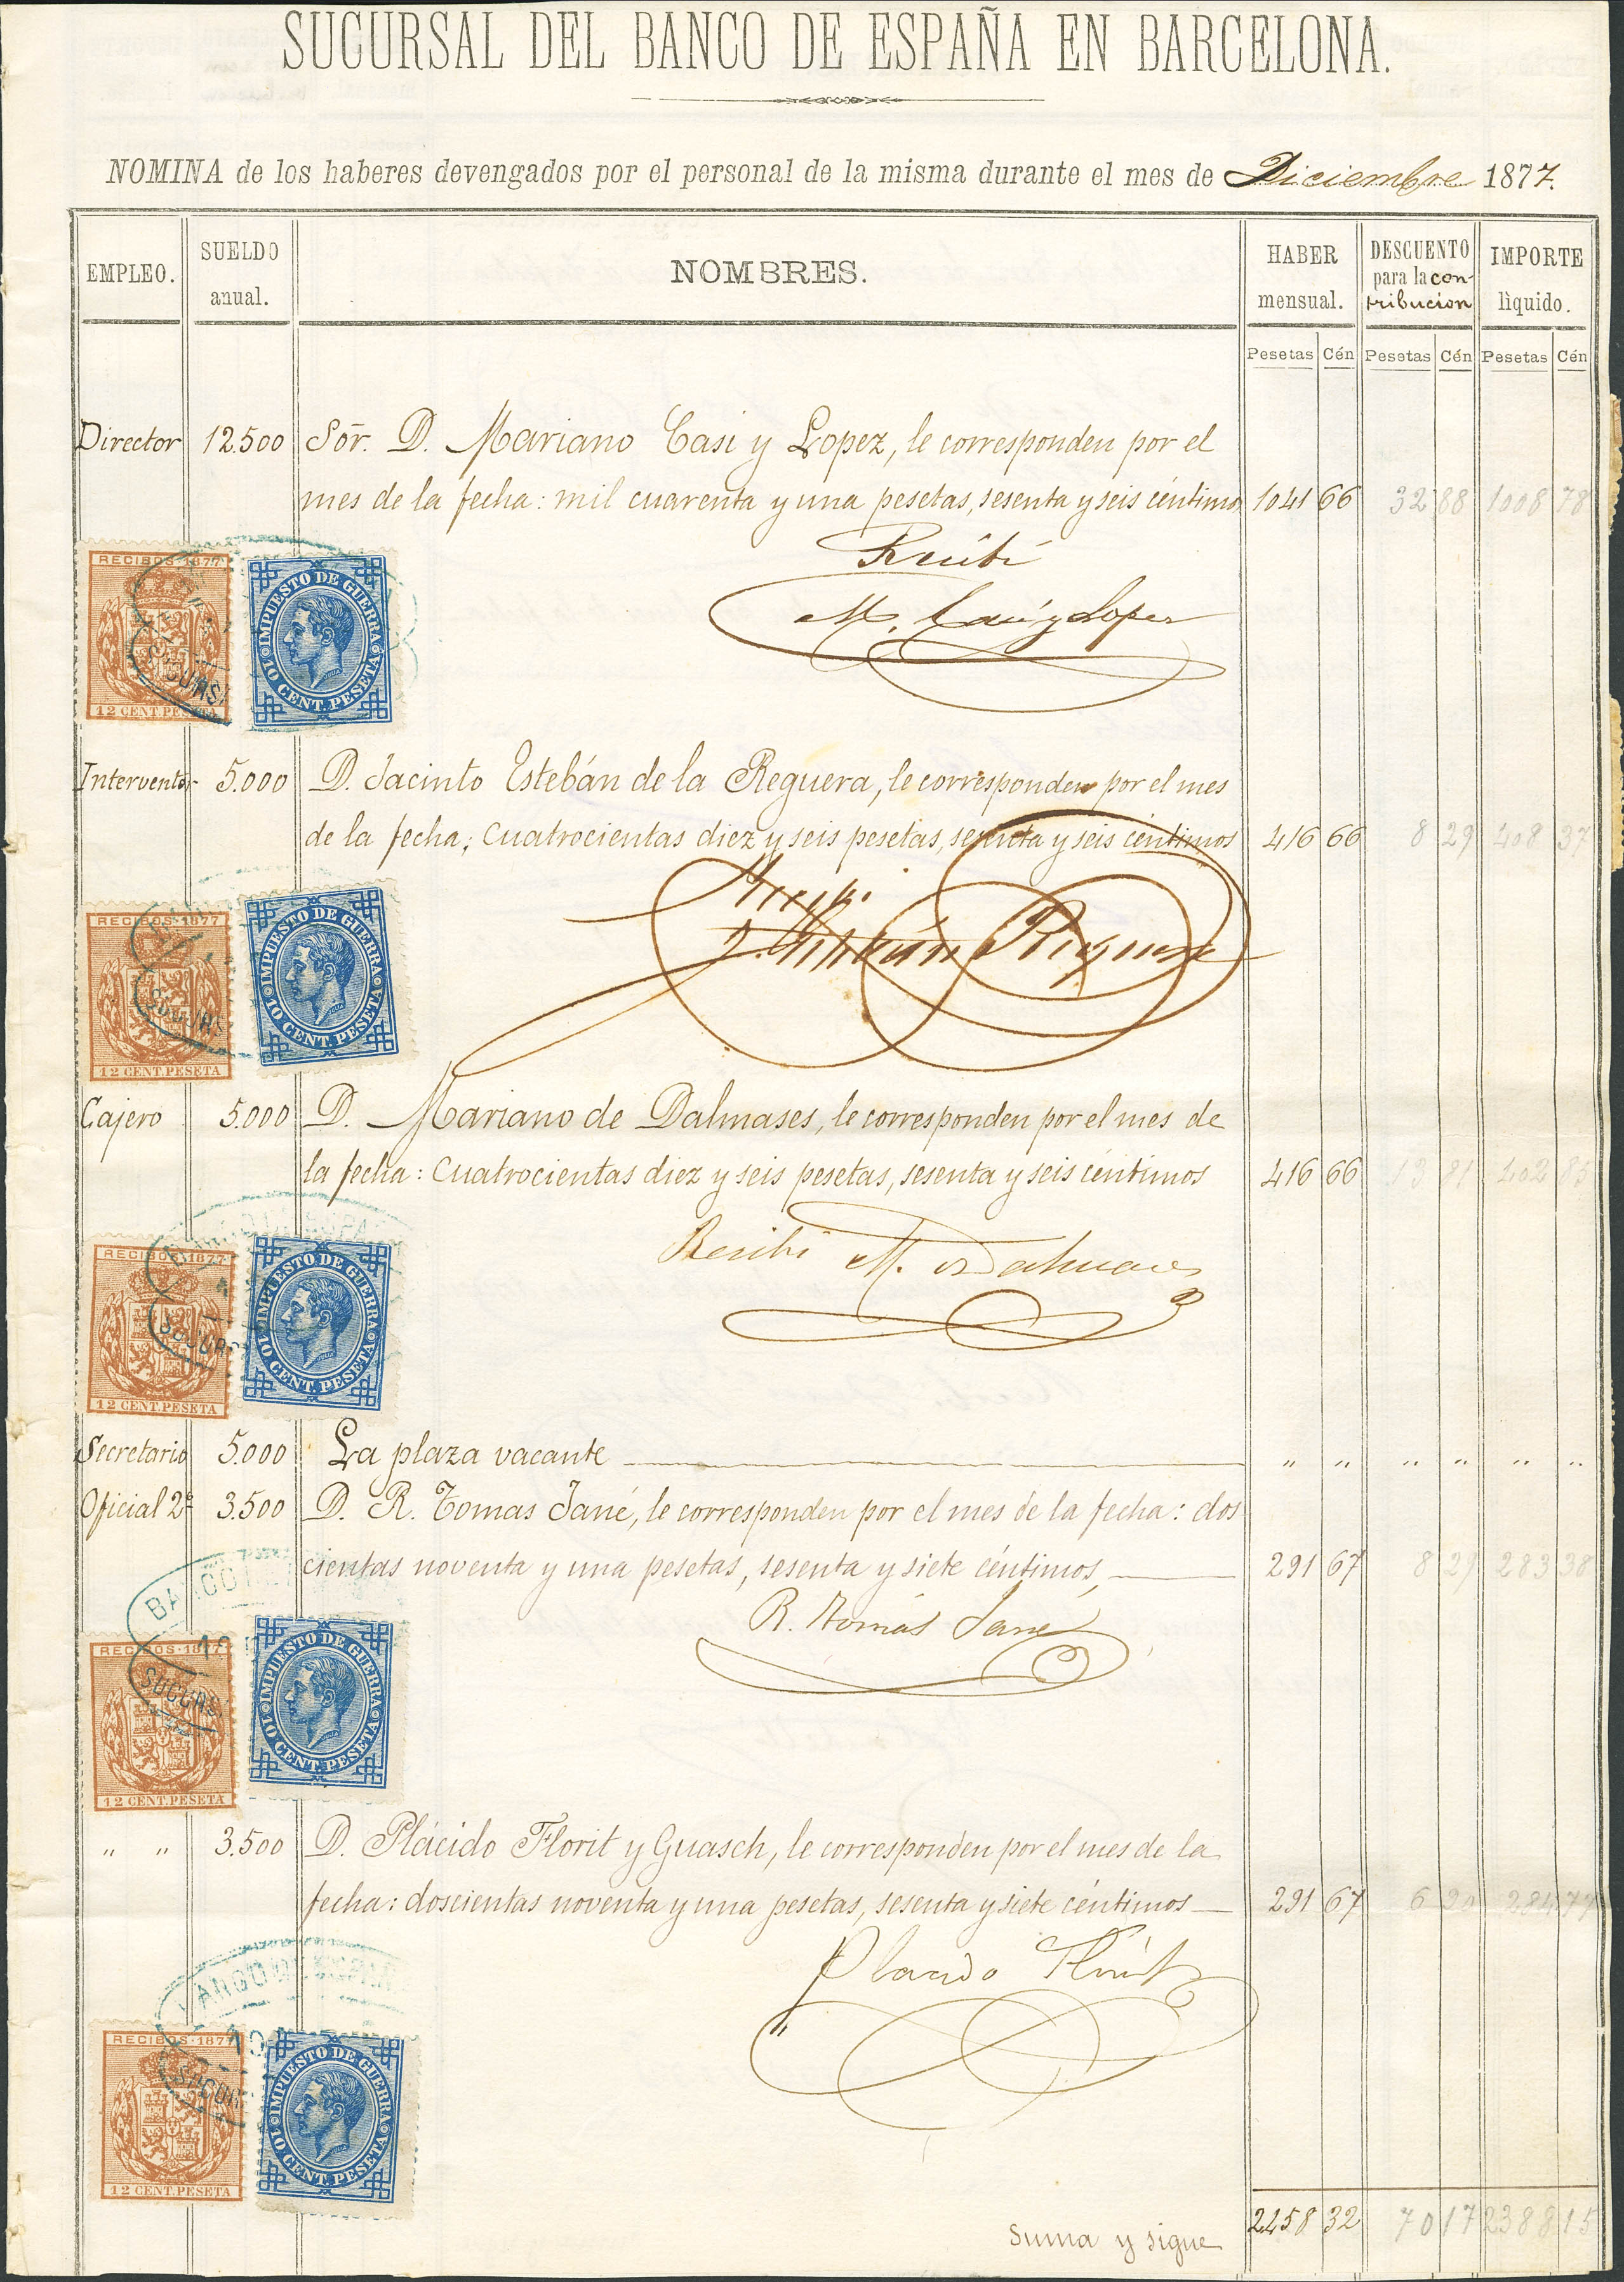 SUCURSAL DEL BANCO DE ESPAÑA EN BARCELONA.
NOMINA de los haberes devengados por el personal de la misma durante el mes de Diciembre 1877.
EMPLEO.
SUELDO
anual.
NOMBRES.
HABER
mensual.
DESCUENTO
para la con-
tribucion
IMPORTE
lìquido.
Pesetas Cén Pesetas Cén Pesetas Cén
Director 12.500 Sōr. D. Mariano Casi y Lopez, le corresponden por el
mes de la fecha: mil cuarenta y una pesetas, sesenta y seis céntimos 1041 66 32 88 1008 78
Recibí
M. Casi y Lopez
RECIBOS·1877
12 CENT. PESETA
SUCURS
IMPUESTO DE GUERRA
10 CENT. PESETA
Interventor 5.000 D. Jacinto Estebán de la Reguera, le corresponden por el mes
de la fecha; Cuatrocientas diez y seis pesetas, sesenta y seis céntimos 416 66 8 29 408 37
RECIBOS·1877
12 CENT. PESETA
SUCURS
IMPUESTO DE GUERRA
10 CENT. PESETA
Cajero 5.000 D. Mariano de Dalmases, le corresponden por el mes de
la fecha: Cuatrocientas diez y seis pesetas, sesenta y seis céntimos 416 66 13 81 402 85
Recibí M. Dalmases
RECIBOS·1877
12 CENT. PESETA
SUCUR
IMPUESTO DE GUERRA
10 CENT. PESETA
Secretario 5.000 La plaza vacante " " " " " "
Oficial 2º 3.500 D. R. Tomas Jané, le corresponden por el mes de la fecha: dos
cientas noventa y una pesetas, sesenta y siete céntimos, 291 67 8 29 283 38
R. Tomás Jané
BANCO
RECIBOS·1877
12 CENT. PESETA
SUCURS
IMPUESTO DE GUERRA
10 CENT. PESETA
" " 3.500 D. Plácido Florit y Guasch, le corresponden por el mes de la
fecha: doscientas noventa y una pesetas, sesenta y siete céntimos 291 67 6 90 284 77
Placido Florit
BANCO DE ESPAÑA
RECIBOS·1877
12 CENT. PESETA
SUCUR
IMPUESTO DE GUERRA
10 CENT. PESETA
Suma y sigue 2458 32 70 17 2388 15